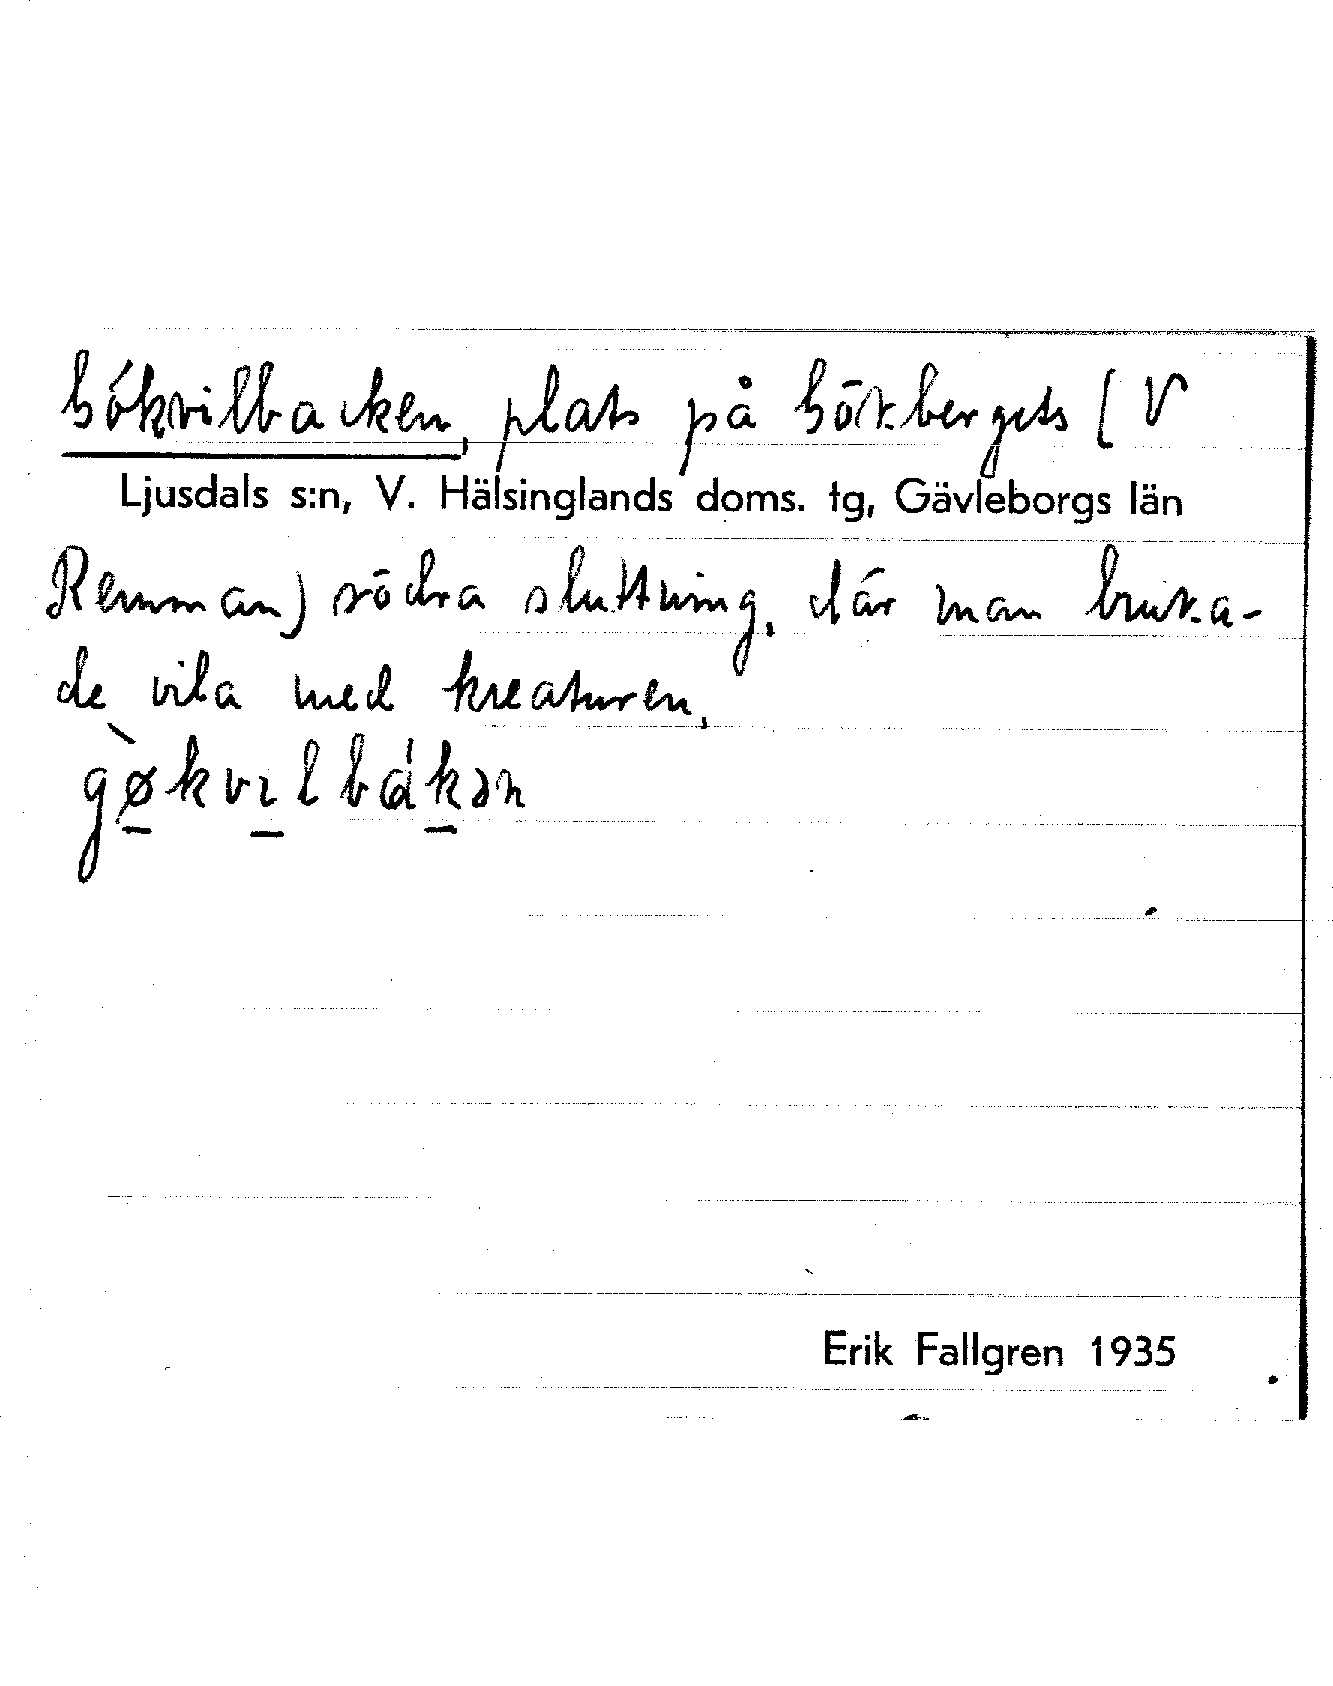 Gökvilbacken, plats på Gökbergets (V
Ljusdals s:n, V. Hälsinglands doms. tg, Gävleborgs län
Remman) södra sluttning, där man bruka-
de vila med kreaturen.
gø̀kvılbákən
Erik Fallgren 1935